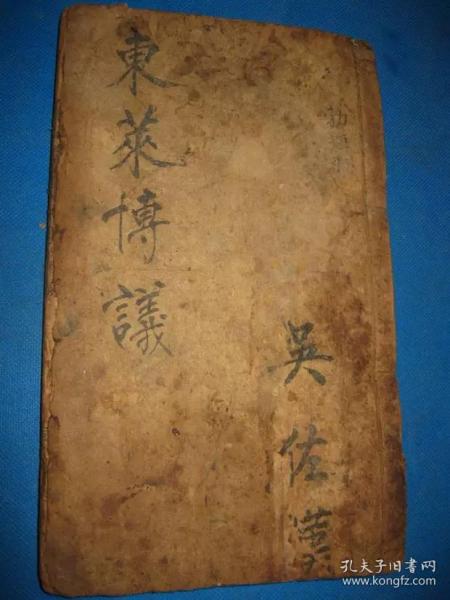 東萊博議
吳佐漢
孔夫子旧书网
www.kongfz.com